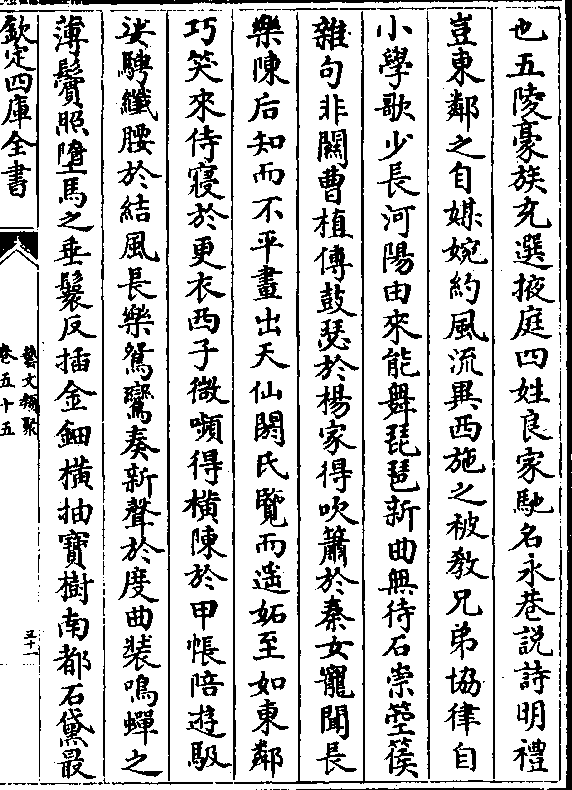 也五陵豪族充選掖庭四姓良家馳名永巷說詩明禮
豈東鄰之自媒婉約風流異西施之被教兄弟協律自
小學歌少長河陽由來能舞琵琶新曲無待石崇箜篌
雜句非關曹植傳鼓瑟於楊家得吹簫於秦女寵聞長
樂陳后知而不平畫出天仙閼氏覽而遥妬至如東鄰
巧笑來侍寢於更衣西子微嚬得橫陳於甲帳陪遊馺
娑騁纖腰於結風長樂鴛鸞奏新聲於度曲裝鳴蟬之
薄鬢照墮馬之垂鬟反插金鈿橫抽寶樹南都石黛最
欽定四庫全書
藝文類聚
卷五十五
三十一